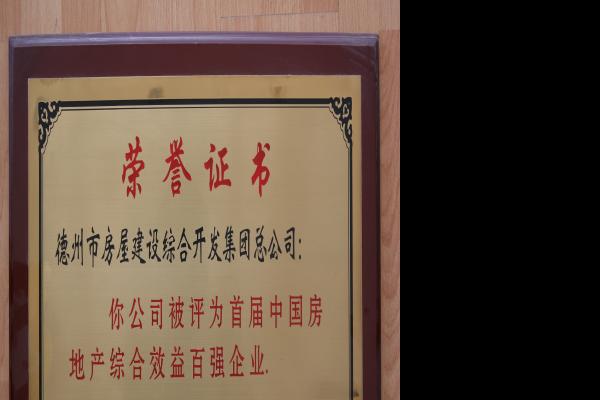 荣誉证书
德州市房屋建设综合开发集团总公司:
你公司被评为首届中国房
地产综合效益百强企业.